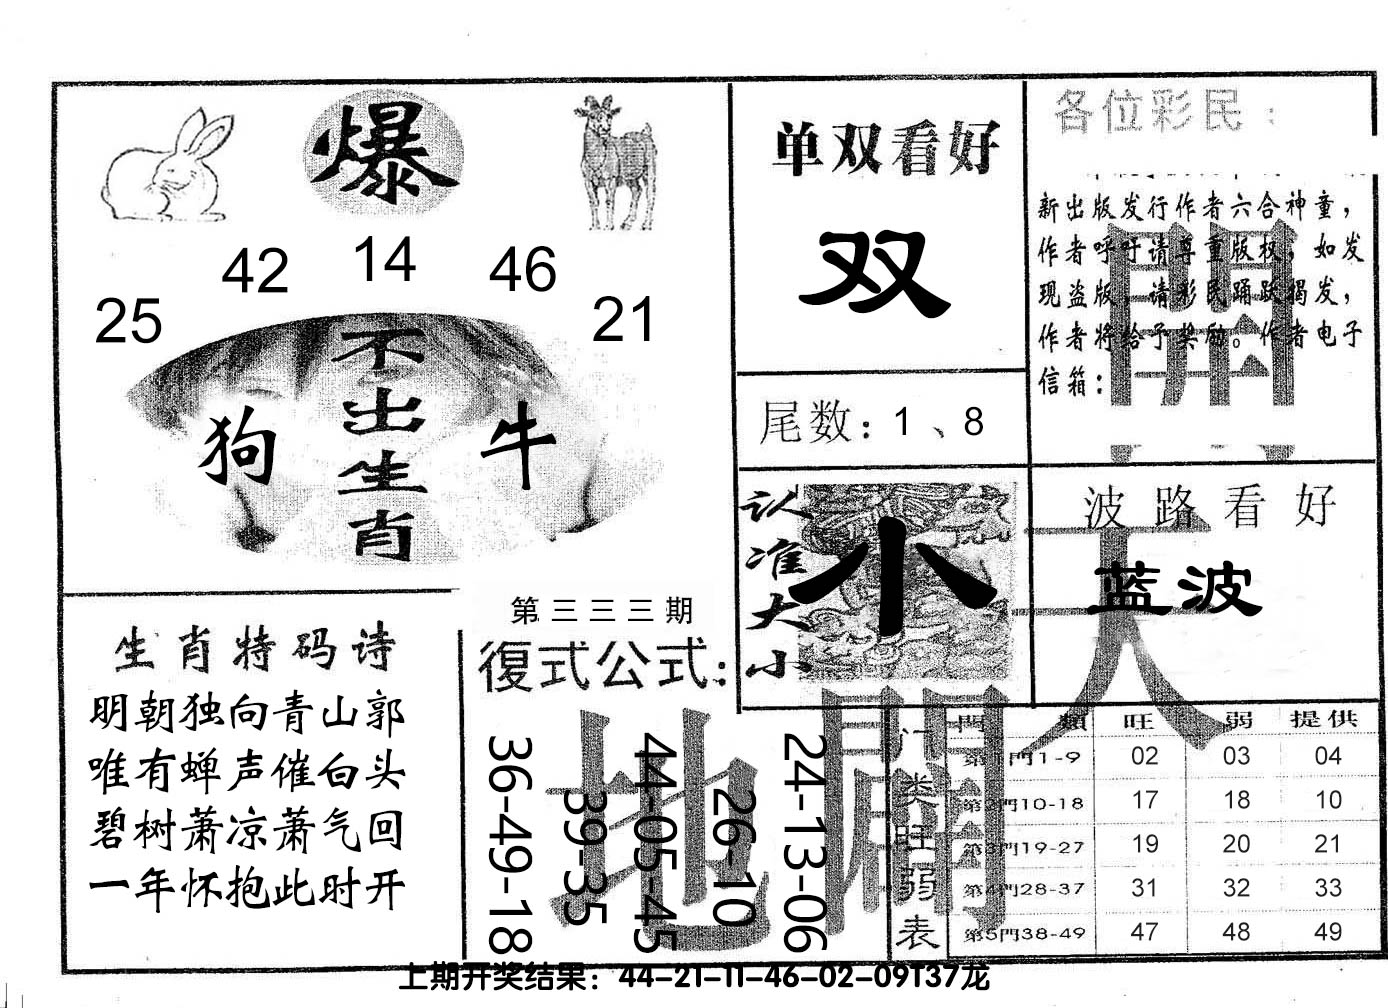 爆
25 42 14 46 21
不出生肖
狗 牛
单双看好
双
尾数：1、8
各位彩民：
新出版发行作者六合神童，
作者呼吁请尊重版权，如发
现盗版，请彩民踊跃揭发，
作者将给予奖励。作者电子
信箱：
認准大小
小
波路看好
蓝波
天
地
開
開
生肖特码诗
明朝独向青山郭
唯有蝉声催白头
碧树萧凉萧气回
一年怀抱此时开
第三三三期
復式公式：
36-49-18
39-35
44-05-45
26-10
24-13-06
门类旺弱表
門類 旺 弱 提供
第1門1-9 02 03 04
第2門10-18 17 18 10
第3門19-27 19 20 21
第4門28-37 31 32 33
第5門38-49 47 48 49
上期开奖结果：44-21-11-46-02-09T37龙